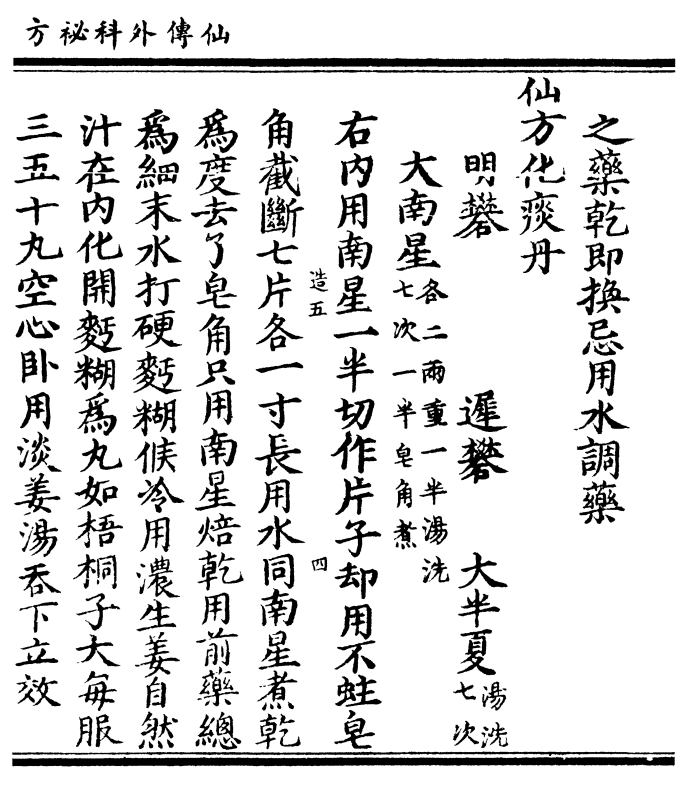 仙傳外科祕方
之藥乾即換忌用水調藥
仙方化痰丹
明礬 遲礬 大半夏湯洗七次
大南星各二兩重一半湯洗七次一半皂角煮
右內用南星一半切作片子却用不蛀皂
角截斷七片各一寸長用水同南星煮乾
爲度去了皂角只用南星焙乾用前藥總
爲細末水打硬麪糊候冷用濃生姜自然
汁在內化開麪糊爲丸如梧桐子大每服
三五十丸空心卧用淡姜湯吞下立效
造五
四